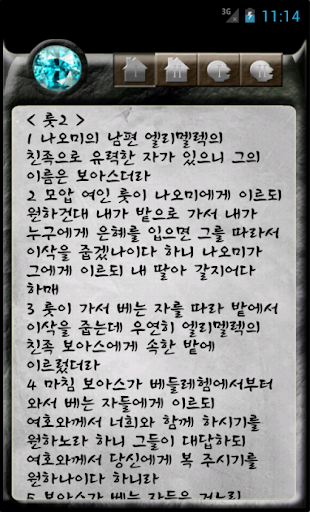 3G 11:14
I II I II
< 룻2 >
1 나오미의 남편 엘리멜렉의
친족으로 유력한 자가 있으니 그의
이름은 보아스더라
2 모압 여인 룻이 나오미에게 이르되
원하건대 내가 밭으로 가서 내가
누구에게 은혜를 입으면 그를 따라서
이삭을 줍겠나이다 하니 나오미가
그에게 이르되 내 딸아 갈지어다
하매
3 룻이 가서 베는 자를 따라 밭에서
이삭을 줍는데 우연히 엘리멜렉의
친족 보아스에게 속한 밭에
이르렀더라
4 마침 보아스가 베들레헴에서부터
와서 베는 자들에게 이르되
여호와께서 너희와 함께 하시기를
원하노라 하니 그들이 대답하되
여호와께서 당신에게 복 주시기를
원하나이다 하니라
5 보아스가 베는 자들을 거느린